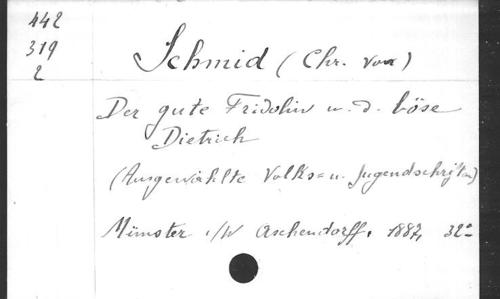 442
319
2
Schmid (Chr. von)
Der gute Fridolin u. d. böse
Dietrich
(Ausgewählte Volks= u. Jugendschriften)
Münster i/W Aschendorff. 1887, 32°